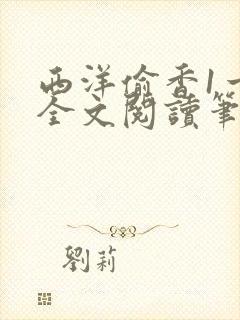 西洋偷香1一
全文閱讀筆
劉莉